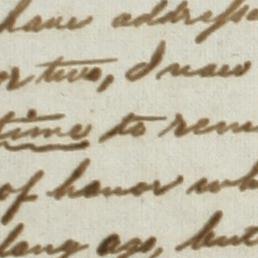 have addresse
or two, I now
time to renu
of honor wh
long ago, but